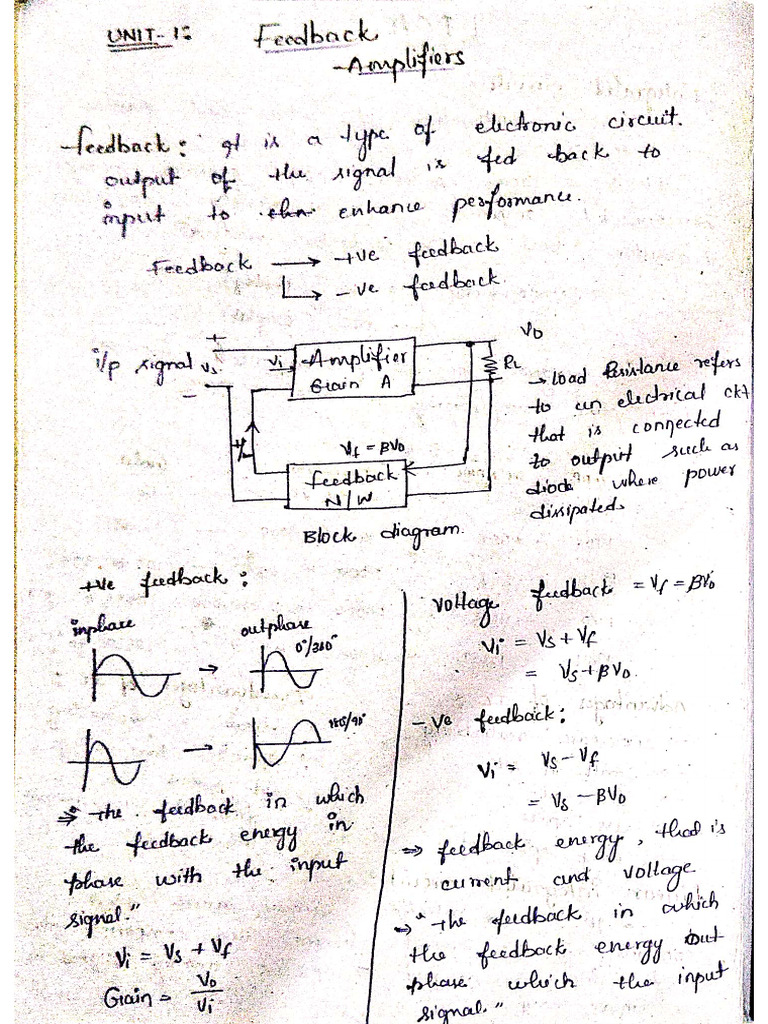 UNIT-1:
Feedback
-Amplifiers
feedback: It is a type of electronic circuit.
output of the signal is fed back to
input to enhance performance.
Feedback → +ve feedback
↳ -ve feedback
+
i/p signal Vs
-
Vi
Amplifier
Gain A
Vo
RL
→ Load Resistance refers
to an electrical ckt
that is connected
to output such as
diode where power
dissipated.
Vf = βVo
feedback
N/W
Block diagram.
+ve feedback:
inphase
outphase
0°/360°
→
→
⇒ "the feedback in which
the feedback energy in
phase with the input
signal."
Vi = Vs + Vf
Gain = Vo/Vi
Voltage feedback = Vf = βVo
Vi = Vs + Vf
= Vs + βVo
-Ve feedback:
Vi = Vs - Vf
= Vs - βVo
⇒ feedback energy, that is
current and voltage
⇒ "the feedback in which
the feedback energy out
phase which the input
signal."